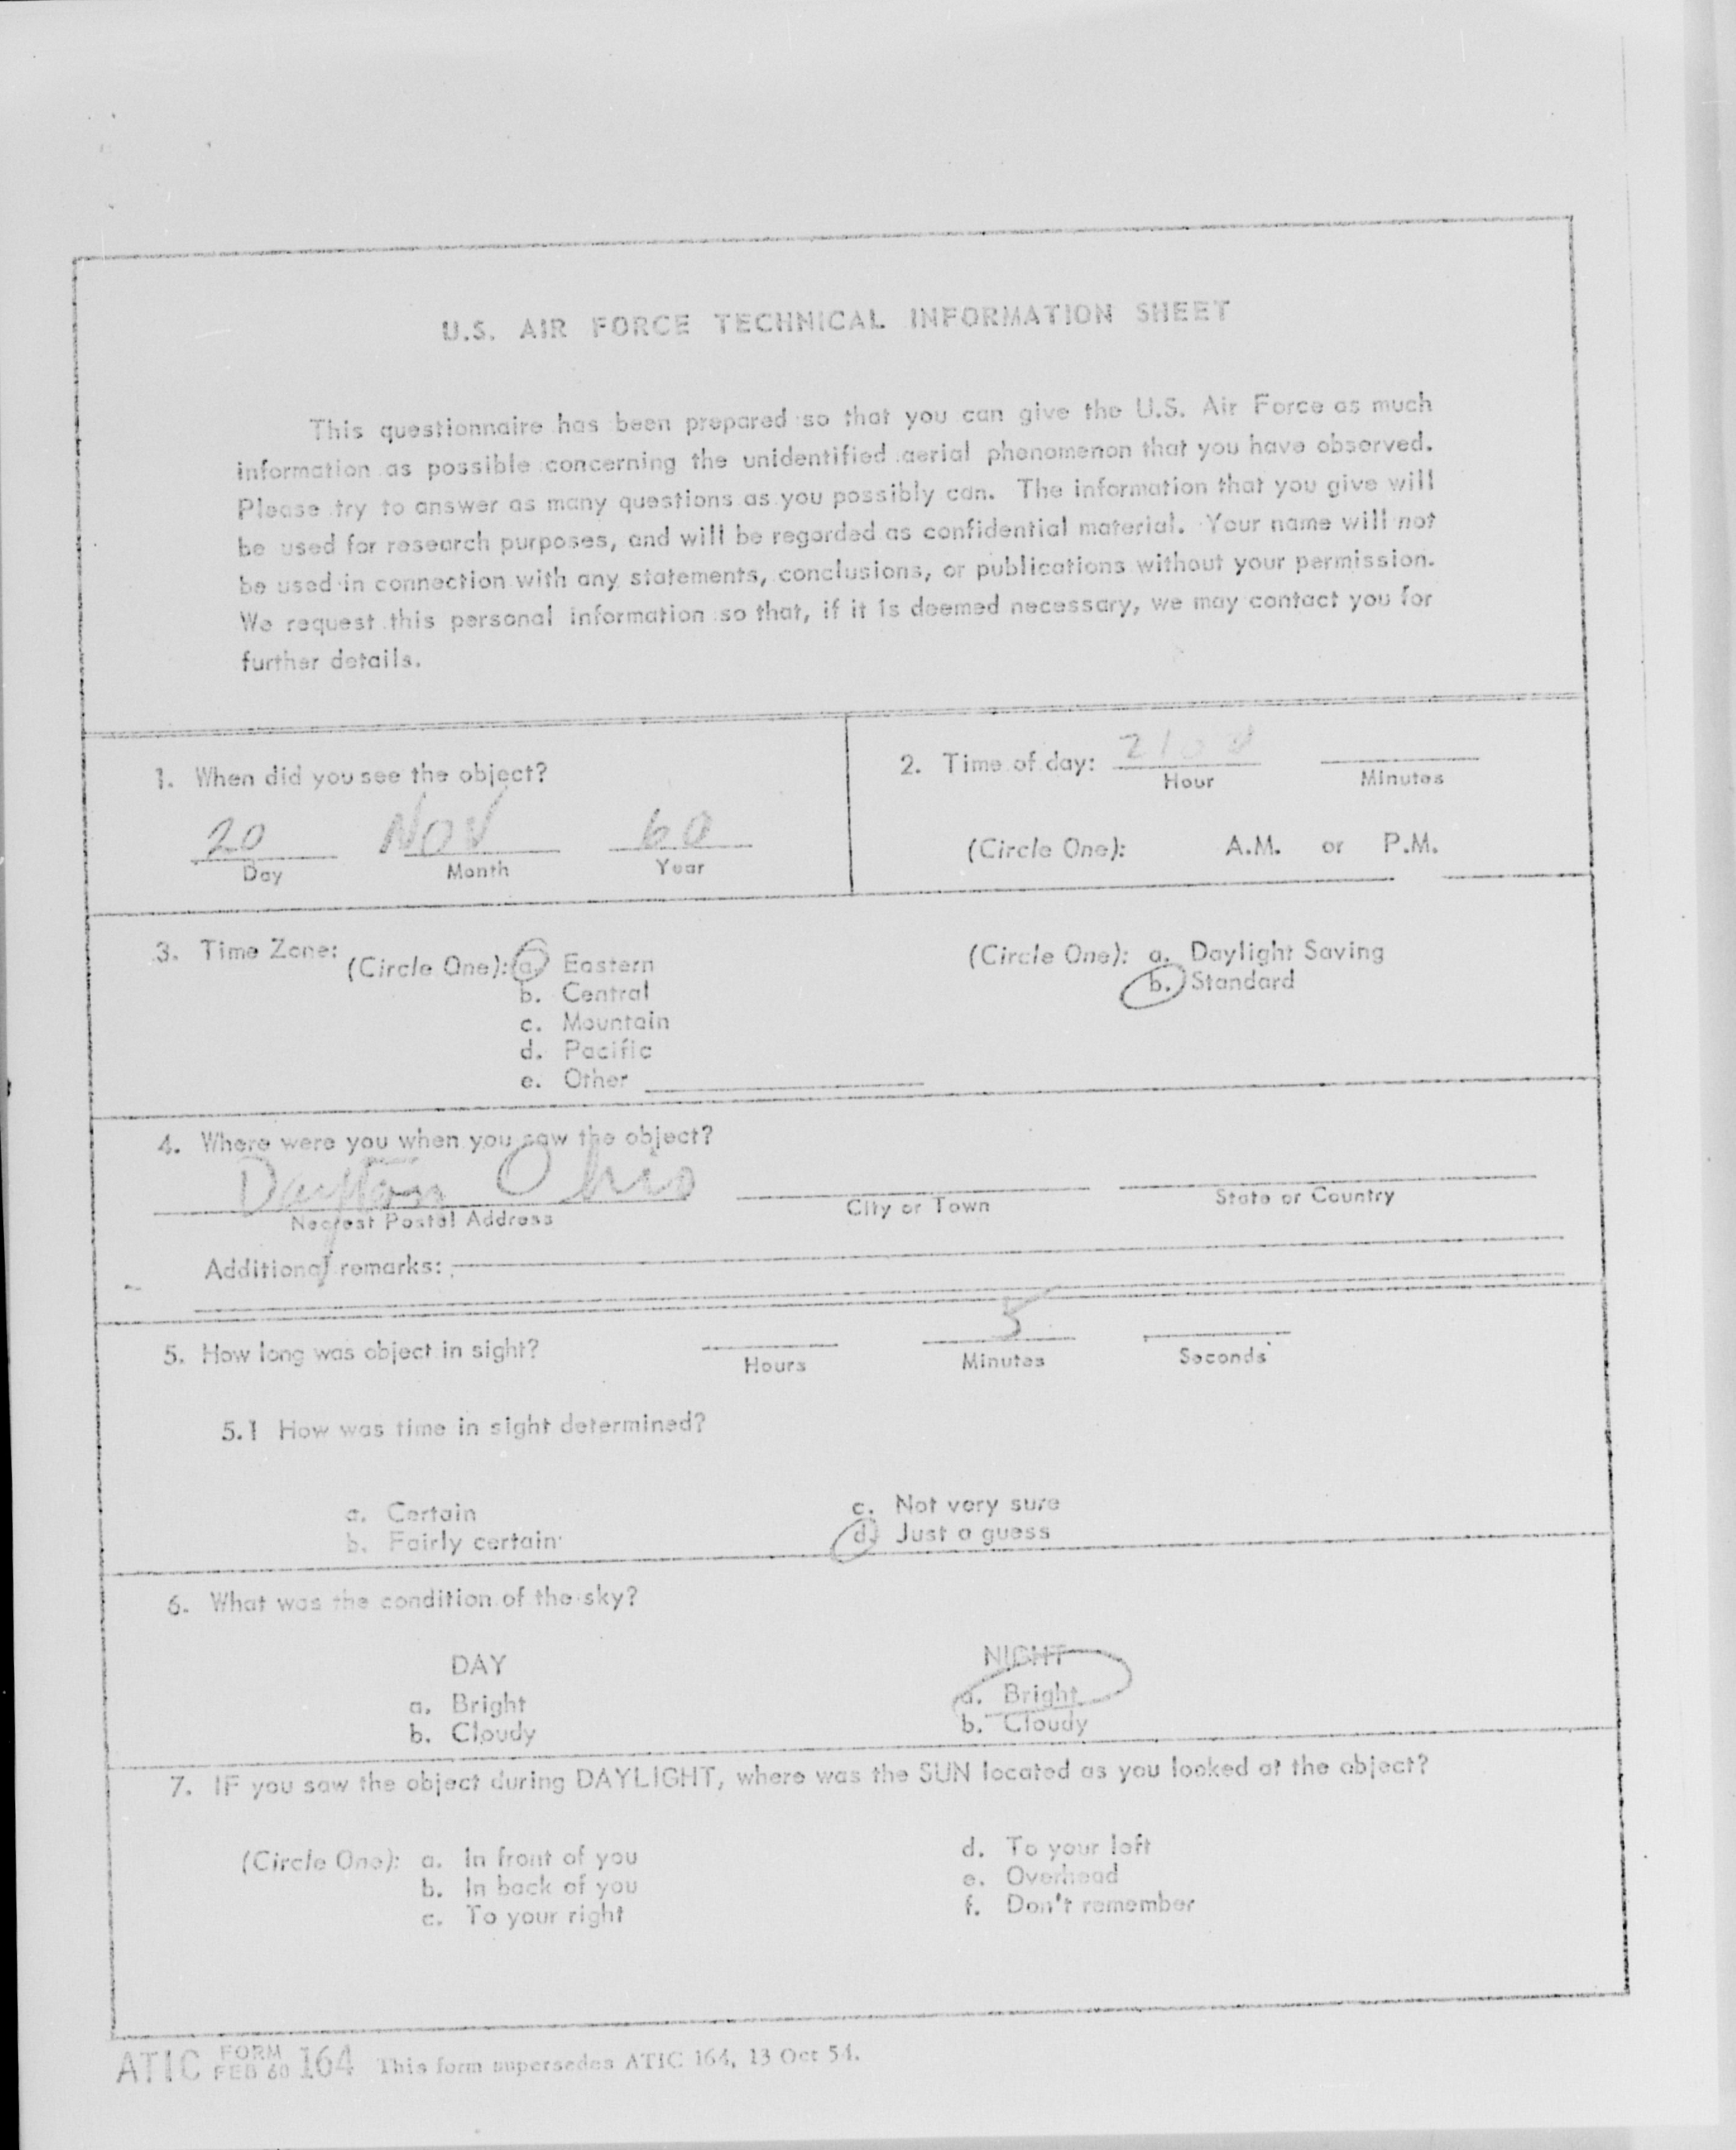 U.S. AIR FORCE TECHNICAL INFORMATION SHEET
This questionnaire has been prepared so that you can give the U.S. Air Force as much
information as possible concerning the unidentified aerial phenomenon that you have observed.
Please try to answer as many questions as you possibly can. The information that you give will
be used for research purposes, and will be regarded as confidential material. Your name will not
be used in connection with any statements, conclusions, or publications without your permission.
We request this personal information so that, if it is deemed necessary, we may contact you for
further details.
1. When did you see the object?
20 Nov 60
Day Month Year
2. Time of day: 2100
Hour Minutes
(Circle One): A.M. or P.M.
3. Time Zone:
(Circle One): a. Eastern
b. Central
c. Mountain
d. Pacific
e. Other
(Circle One): a. Daylight Saving
b. Standard
4. Where were you when you saw the object?
Dayton Ohio
Nearest Postal Address City or Town State or Country
Additional remarks:
5. How long was object in sight? 5
Hours Minutes Seconds
5.1 How was time in sight determined?
a. Certain
b. Fairly certain
c. Not very sure
d. Just a guess
6. What was the condition of the sky?
DAY
a. Bright
b. Cloudy
NIGHT
a. Bright
b. Cloudy
7. IF you saw the object during DAYLIGHT, where was the SUN located as you looked at the object?
(Circle One): a. In front of you
b. In back of you
c. To your right
d. To your left
e. Overhead
f. Don't remember
ATIC FORM FEB 60 164 This form supersedes ATIC 164, 13 Oct 54.